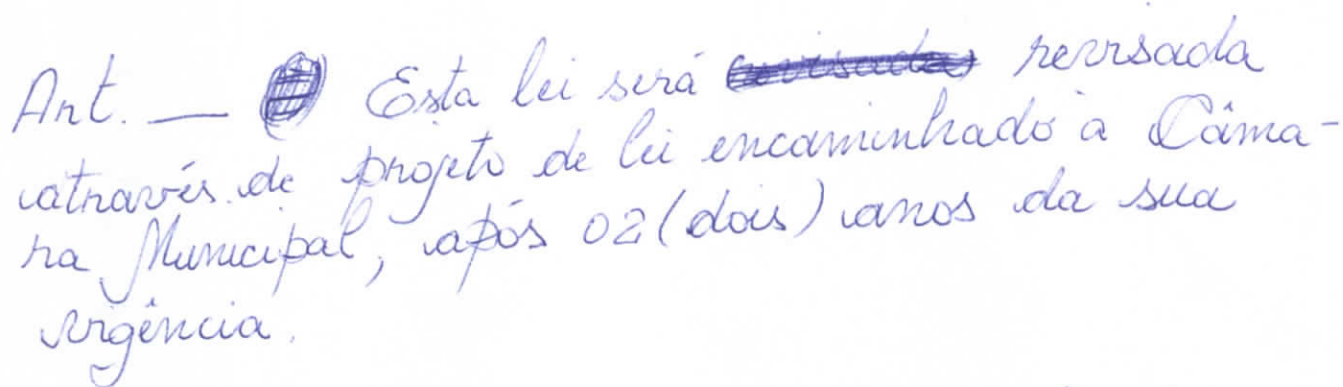 Art. — Esta lei será revisada
através de projeto de lei encaminhado à Câma-
ra Municipal, após 02 (dois) anos da sua
vigência.